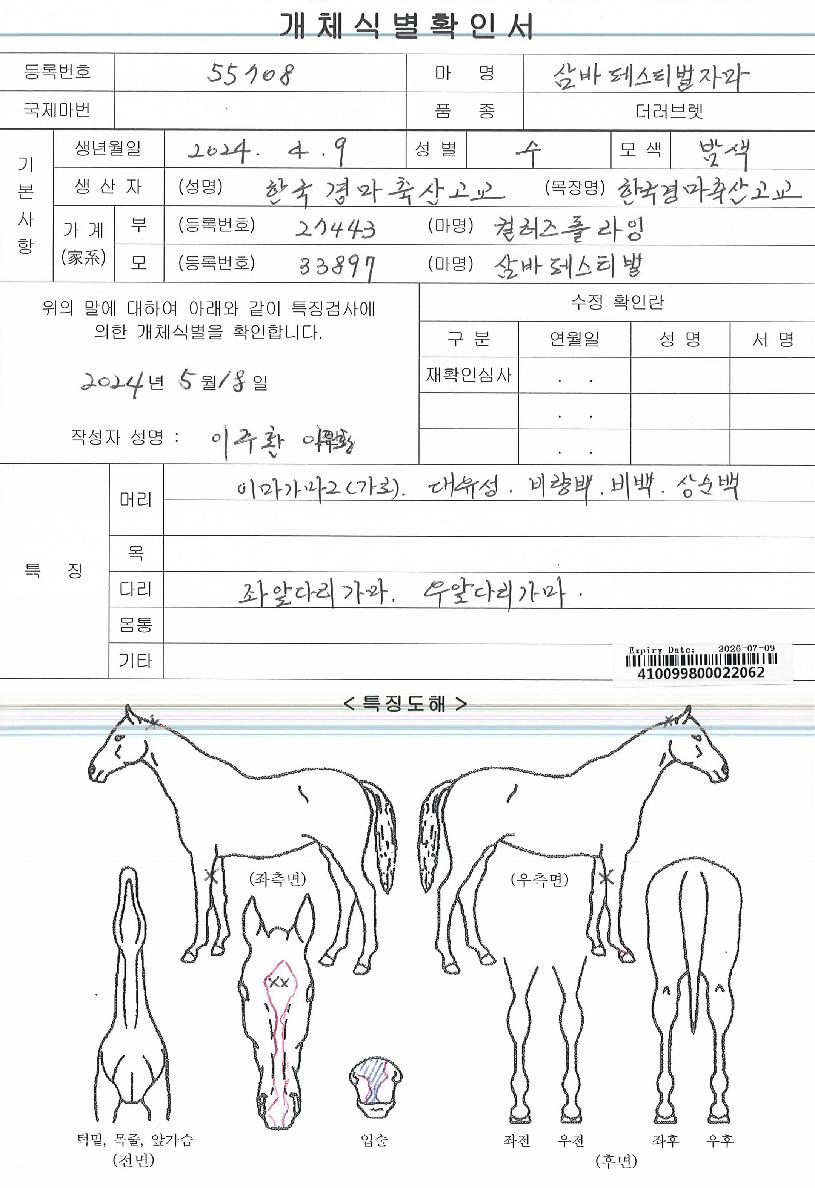 개체식별확인서
등록번호 55708 마 명 삼바페스티벌자마
국제마번 품 종 더러브렛
기본사항
생년월일 2024. 4. 9 성 별 수 모 색 밤색
생 산 자 (성명) 한국경마축산고교 (목장명) 한국경마축산고교
가 계 (家系)
부 (등록번호) 27443 (마명) 컬러즈플라잉
모 (등록번호) 33897 (마명) 삼바페스티벌
위의 말에 대하여 아래와 같이 특징검사에
의한 개체식별을 확인합니다.
2024년 5월 18일
작성자 성명 : 이주환
수정 확인란
구 분 연월일 성 명 서 명
재확인심사 . .
. .
. .
특 징
머리 이마가마2(가로). 대유성. 비량백. 비백. 상순백
목
다리 좌앞다리가마. 우앞다리가마.
몸통
기타
Expiry Date: 2026-07-09
410099800022062
< 특징도해 >
(좌측면) (우측면)
턱밑, 목줄, 앞가슴
(전면)
입술
좌전 우전 좌후 우후
(후면)